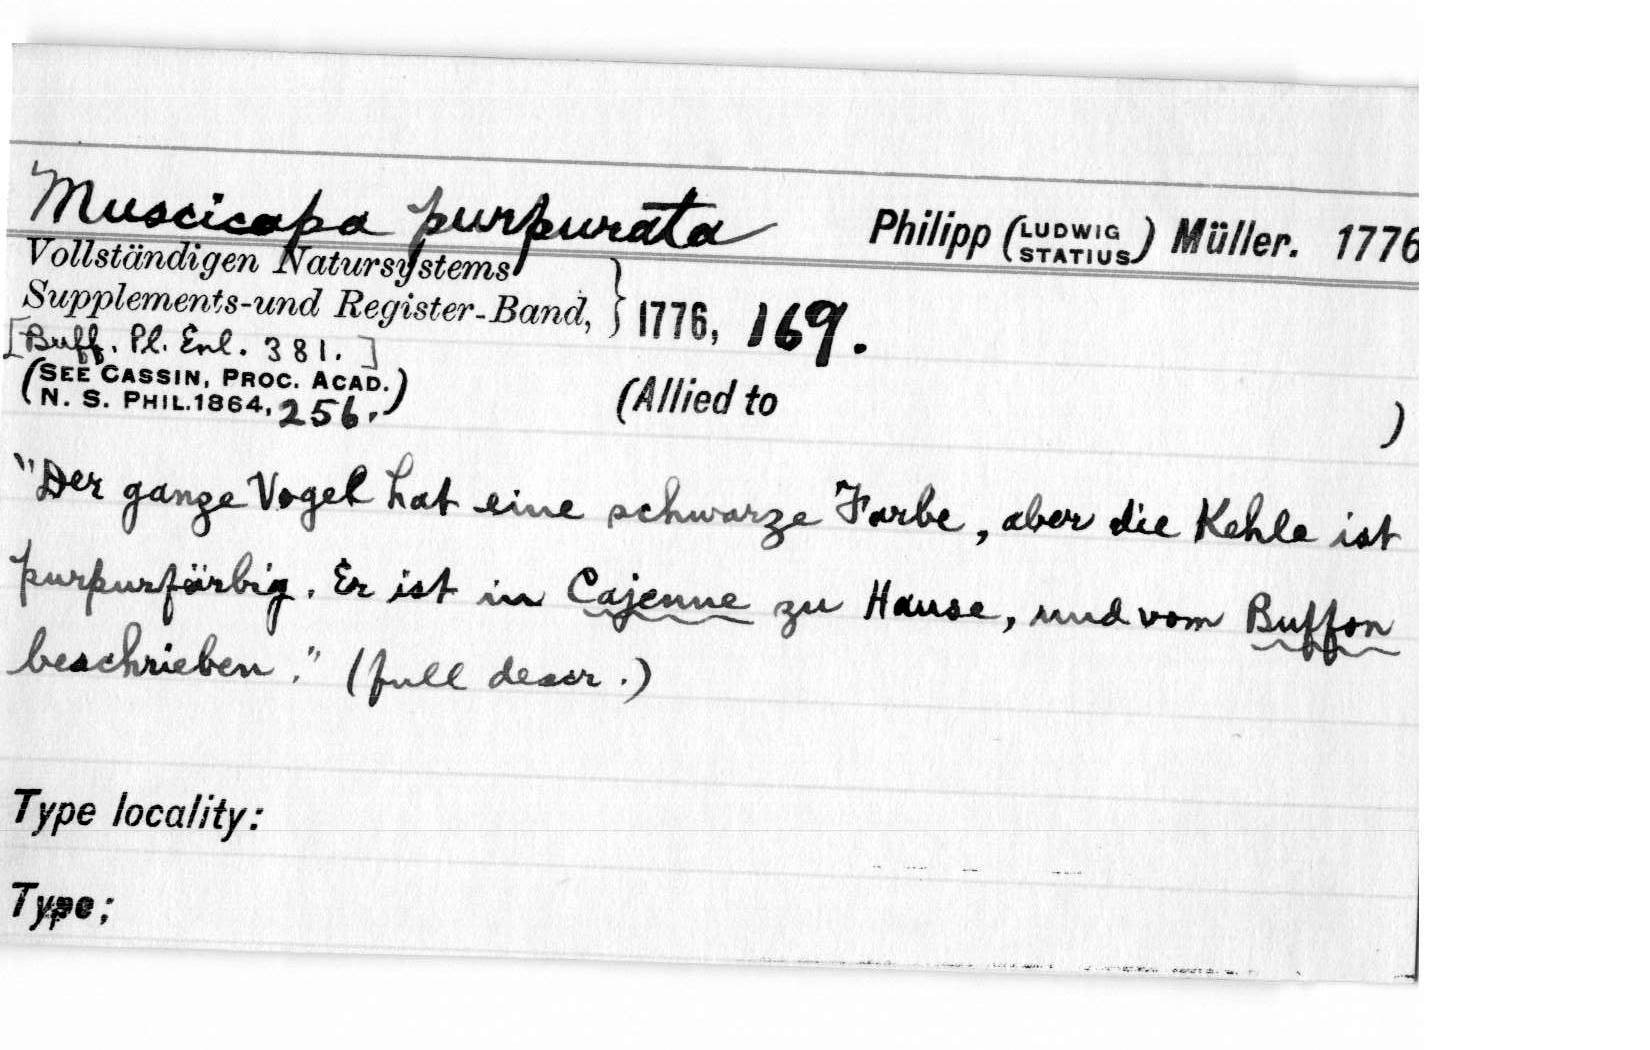 Muscicapa purpurata Philipp (LUDWIG STATIUS) Müller. 1776
Vollständigen Natursystems
Supplements-und Register-Band, } 1776, 169.
[Buff. Pl. Enl. 381.]
(SEE CASSIN, PROC. ACAD.
N. S. PHIL. 1864, 256.) (Allied to )
"Der ganze Vogel hat eine schwarze Farbe, aber die Kehle ist
purpurfärbig. Er ist in Cajenne zu Hause, und vom Buffon
beschrieben." (full descr.)
Type locality:
Type;